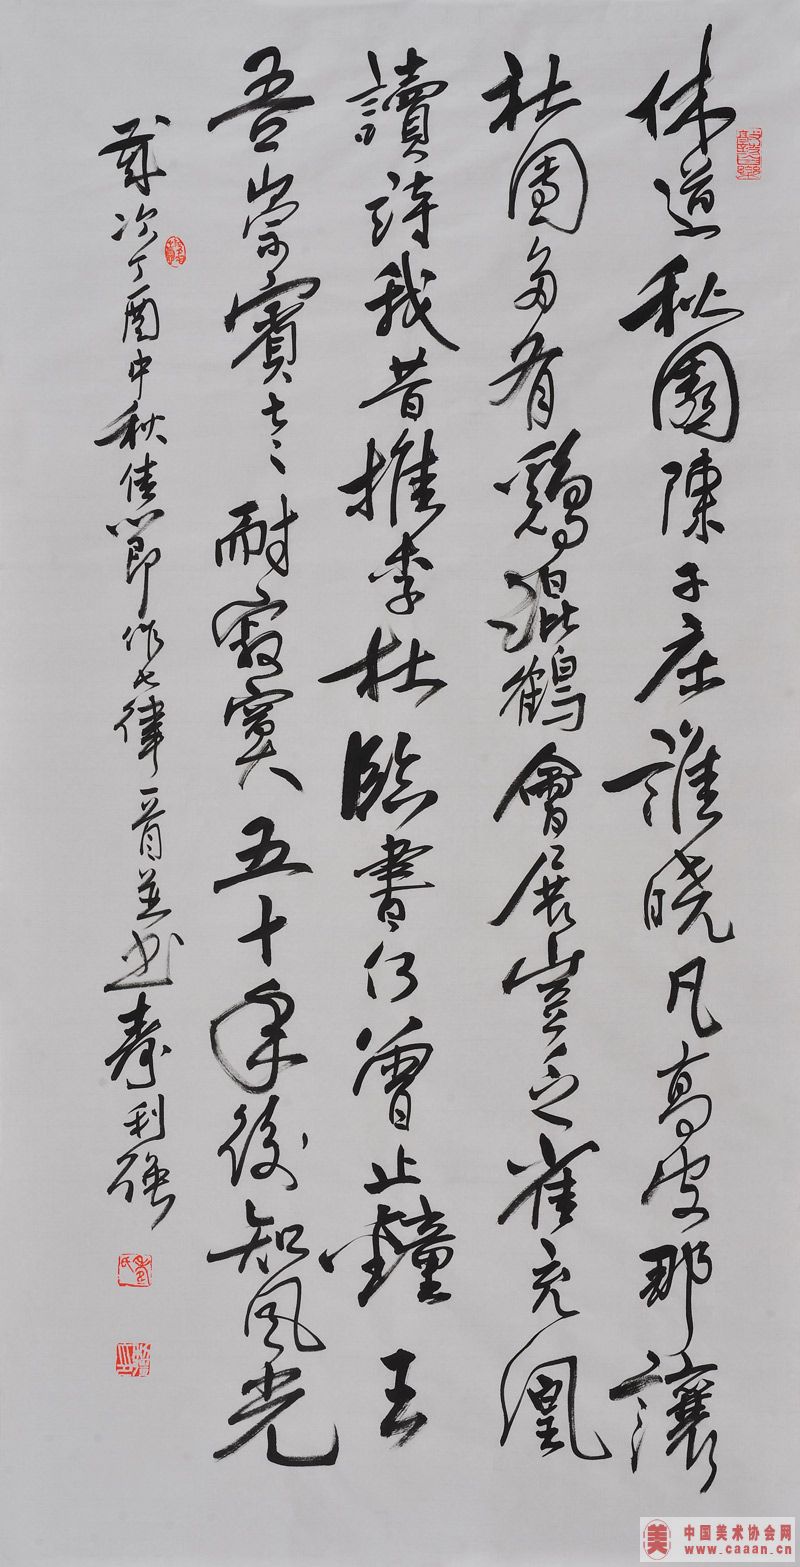 休道秋園陳子庄誰曉凡高那讓
社團多有鷄混鶴會展豈乏雀充凰
讀詩我昔推李杜臨書何曾止鐘王
吾崇賓老耐寂寞五十年後知風光
歲次丁酉中秋佳節作七律一首並書秦利強
中国美术协会网
www.caaan.cn